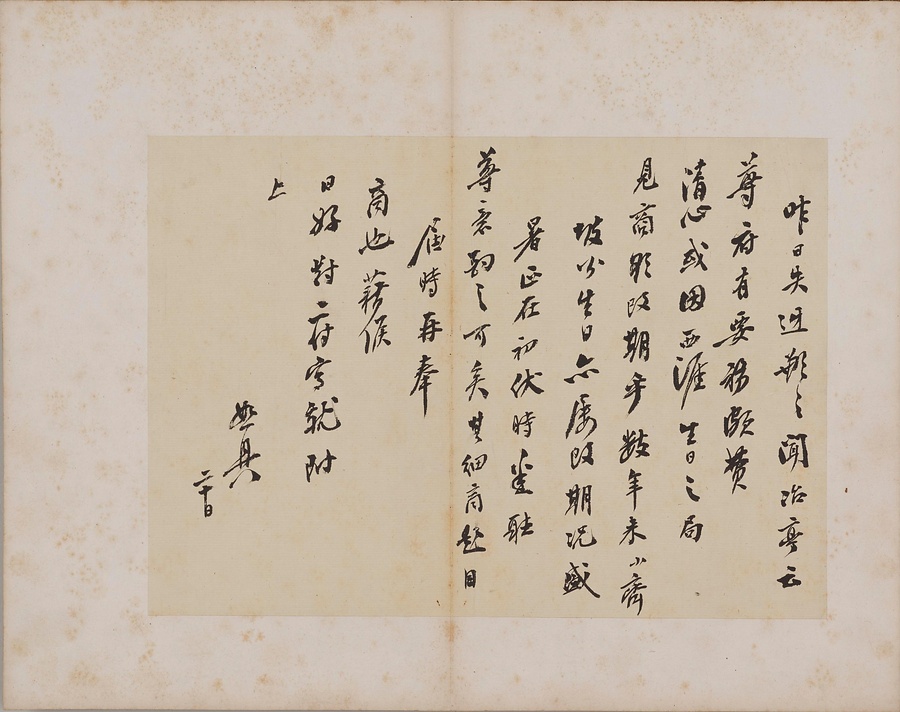 昨日失迓歉歉聞冶亭云
尊府有要務頗費
清心或因西涯生日之局
見商明改期乎數年來小齋
坡公生日亦屢改期況盛
暑正在初伏時
尊意酌之可矣其細商題目
屆時再奉
商也藉候
日好對二府字就附
上
二十日